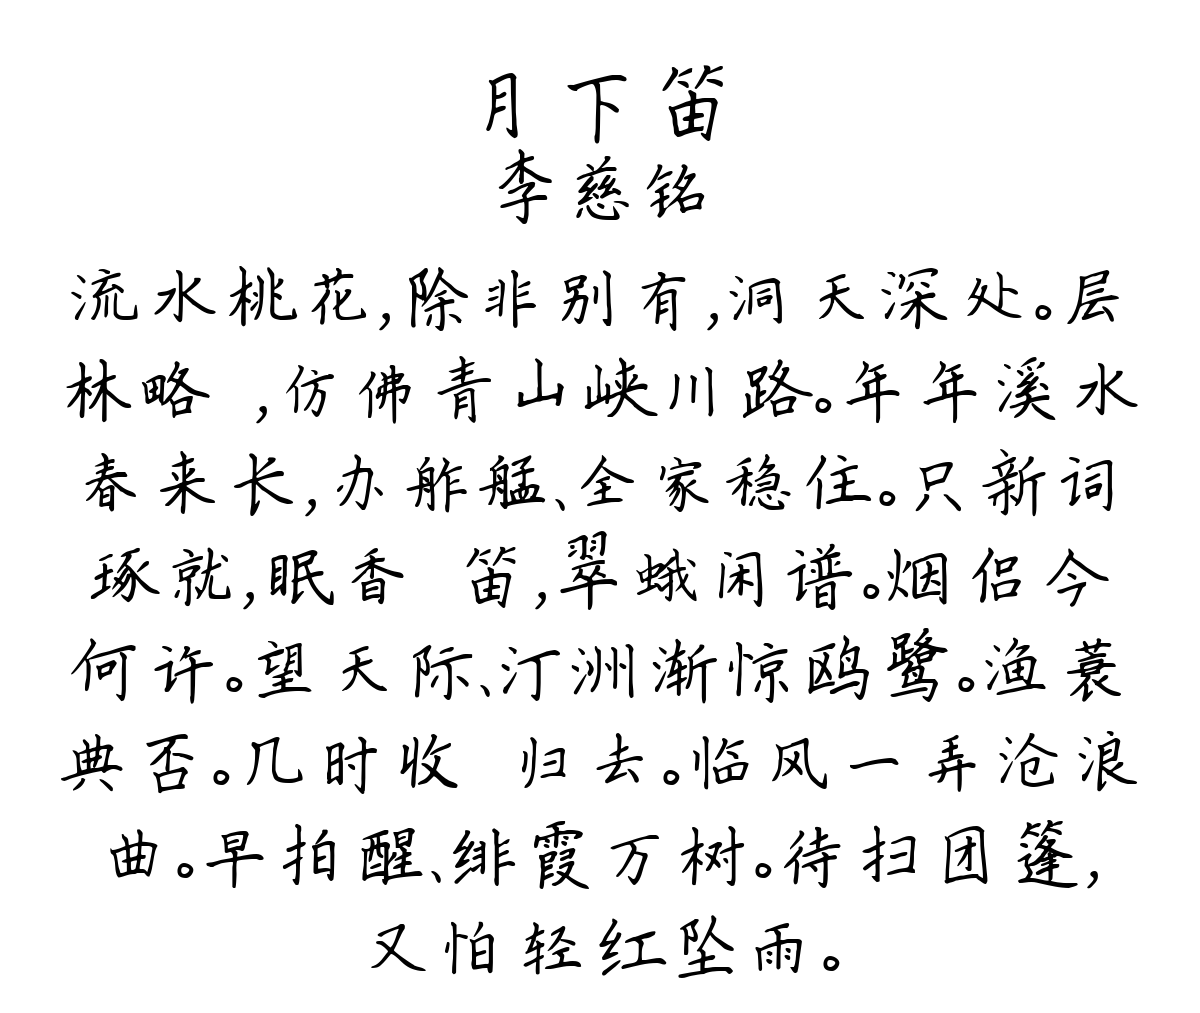 月下笛
李慈铭
流水桃花,除非别有,洞天深处。层
林略 ,仿佛青山峡川路。年年溪水
春来长,办舴艋、全家稳住。只新词
琢就,眠香 笛,翠蛾闲谱。烟侣今
何许。望天际、汀洲渐惊鸥鹭。渔蓑
典否。几时收 归去。临风一弄沧浪
曲。早拍醒、绯霞万树。待扫团篷,
又怕轻红坠雨。